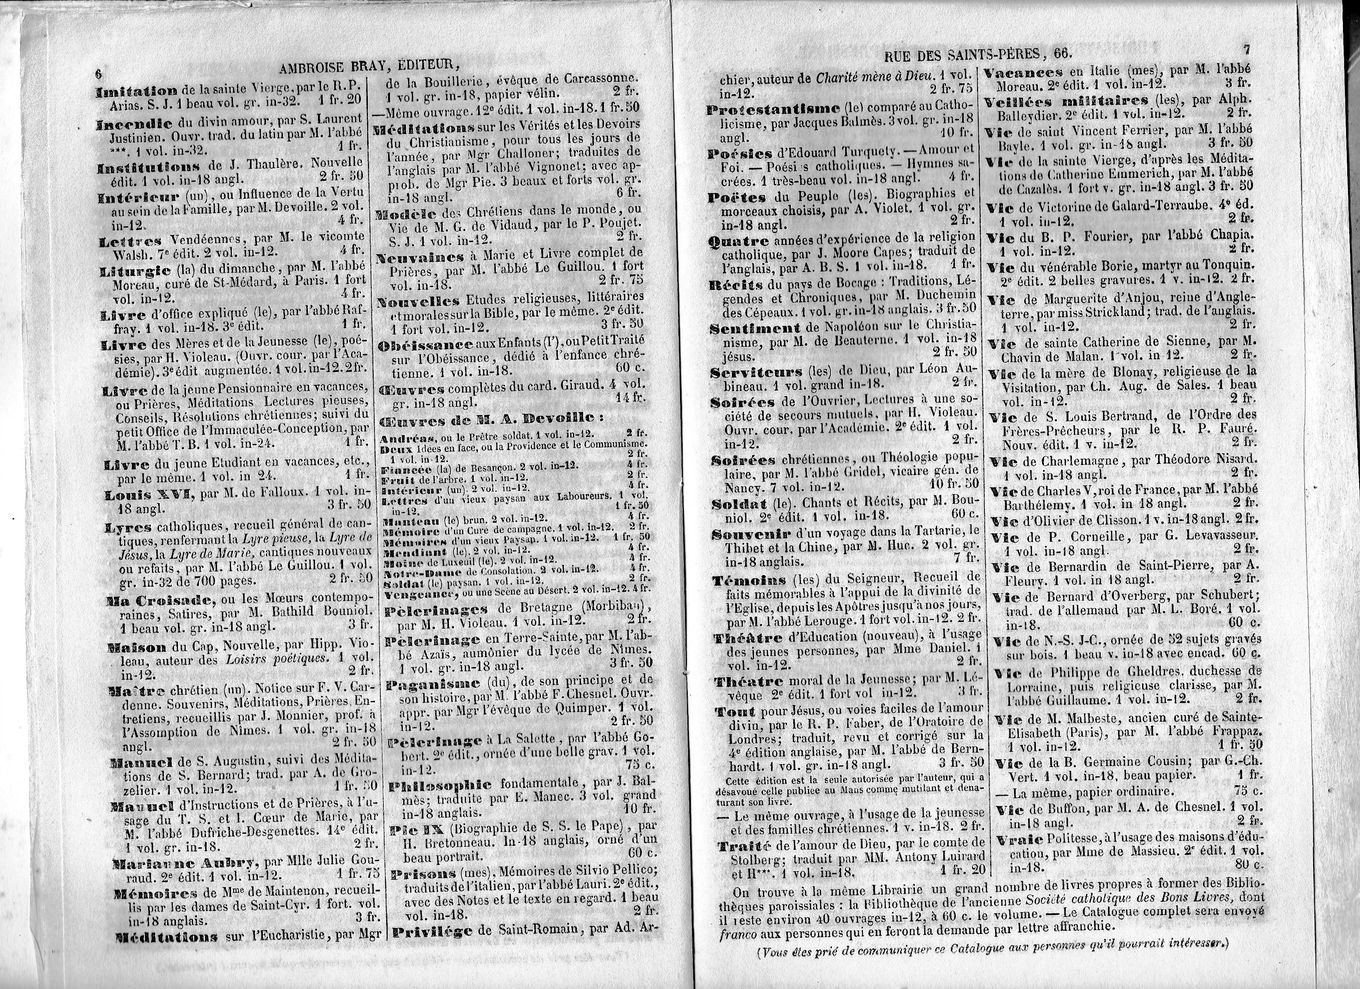 6
AMBROISE BRAY, ÉDITEUR,
Imitation de la sainte Vierge, par le R. P.
Arias. S. J. 1 beau vol. gr. in-32. 1 fr. 20
Incendie du divin amour, par S. Laurent
Justinien. Ouvr. trad. du latin par M. l'abbé
***. 1 vol. in-32. 1 fr.
Institutions de J. Thaulère. Nouvelle
édit. 1 vol. in-18 angl. 2 fr. 50
Intérieur (un), ou Influence de la Vertu
au sein de la Famille, par M. Devoille. 2 vol.
in-12. 4 fr.
Lettres Vendéennes, par M. le vicomte
Walsh. 7e édit. 2 vol. in-12. 4 fr.
Liturgie (la) du dimanche, par M. l'abbé
Moreau, curé de St-Médard, à Paris. 1 fort
vol. in-12. 4 fr.
Livre d'office expliqué (le), par l'abbé Raf-
fray. 1 vol. in-18. 3e édit. 1 fr.
Livre des Mères et de la Jeunesse (le), poé-
sies, par H. Violeau. (Ouvr. cour. par l'Aca-
démie). 3e édit augmentée. 1 vol. in-12. 2 fr.
Livre de la jeune Pensionnaire en vacances,
ou Prières, Méditations. Lectures pieuses,
Conseils, Résolutions chrétiennes; suivi du
petit Office de l'Immaculée-Conception, par
M. l'abbé T. B. 1 vol. in-24. 1 fr.
Livre du jeune Etudiant en vacances, etc.,
par le même. 1 vol. in 24. 1 fr.
Louis XVI, par M. de Falloux. 1 vol. in-
18 angl. 3 fr. 50
Lyres catholiques, recueil général de can-
tiques, renfermant la Lyre pieuse, la Lyre de
Jésus, la Lyre de Marie, cantiques nouveaux
ou refaits, par M. l'abbé Le Guillou. 1 vol.
gr. in-32 de 700 pages. 2 fr. 50
Ma Croisade, ou les Mœurs contempo-
raines, Satires, par M. Bathild Bouniol.
1 beau vol. gr. in-18 angl. 3 fr.
Maison du Cap, Nouvelle, par Hipp. Vio-
leau, auteur des Loisirs poétiques. 1 vol.
in-12. 2 fr.
Maître chrétien (un). Notice sur F. V. Car-
denne. Souvenirs, Méditations, Prières, En-
tretiens, recueillis par J. Monnier, prof. à
l'Assomption de Nîmes. 1 vol. gr. in-18
angl. 2 fr. 50
Manuel de S. Augustin, suivi des Médita-
tions de S. Bernard; trad. par A. de Gro-
zelier. 1 vol. in-12. 1 fr. 50
Manuel d'Instructions et de Prières, à l'u-
sage du T. S. et I. Cœur de Marie, par
M. l'abbé Dufriche-Desgenettes. 14e édit.
1 vol. gr. in-18. 2 fr.
Marianne Aubry, par Mlle Julie Gou-
raud. 2e édit. 1 vol. in-12. 1 fr. 75
Mémoires de Mme de Maintenon, recueil-
lis par les dames de Saint-Cyr. 1 fort. vol.
in-18 anglais. 3 fr.
Méditations sur l'Eucharistie, par Mgr
de la Bouillerie, évêque de Carcassonne.
1 vol. gr. in-18, papier vélin. 2 fr.
—Même ouvrage. 12e édit. 1 vol. in-18. 1 fr. 50
Méditations sur les Vérités et les Devoirs
du Christianisme, pour tous les jours de
l'année, par Mgr Challoner; traduites de
l'anglais par M. l'abbé Vignonet; avec ap-
prob. de Mgr Pie. 3 beaux et forts vol. gr.
in-18 angl. 6 fr.
Modèle des Chrétiens dans le monde, ou
Vie de M. G. de Vidaud, par le P. Poujet.
S. J. 1 vol. in-12. 2 fr.
Neuvaines à Marie et Livre complet de
Prières, par M. l'abbé Le Guillou. 1 fort
vol. in-18. 2 fr. 75
Nouvelles Etudes religieuses, littéraires
et morales sur la Bible, par le même. 2e édit.
1 fort vol. in-12. 3 fr. 50
Obéissance aux Enfants (l'), ou Petit Traité
sur l'Obéissance, dédié à l'enfance chré-
tienne. 1 vol. in-18. 60 c.
Œuvres complètes du card. Giraud. 4 vol.
gr. in-18 angl. 14 fr.
Œuvres de M. A. Devoille :
Andréas, ou le Prêtre soldat. 1 vol. in-12. 2 fr.
Deux Idées en face, ou la Providence et le Communisme.
1 vol. in 12. 2 fr.
Fiancée (la) de Besançon. 2 vol. in-12. 4 fr.
Fruit de l'arbre. 1 vol. in-12. 2 fr.
Intérieur (un). 2 vol. in-12. 4 fr.
Lettres d'un vieux paysan aux Laboureurs. 1 vol.
in-12. 1 fr. 50
Manteau (le) brun. 2 vol. in-12. 4 fr.
Mémoire d'un Curé de campagne. 1 vol. in-12. 2 fr.
Mémoires d'un vieux Paysan. 1 vol. in-12. 1 fr. 50
Mendiant (le). 2 vol. in-12. 4 fr.
Moine de Luxeuil (le). 2 vol. in-12. 4 fr.
Notre-Dame de Consolation. 2 vol. in-12. 4 fr.
Soldat (le) paysan. 1 vol. in-12. 2 fr.
Vengeance, ou une Scène au Désert. 2 vol. in-12. 4 fr.
Pèlerinages de Bretagne (Morbihan),
par M. H. Violeau. 1 vol. in-12. 2 fr.
Pèlerinage en Terre-Sainte, par M. l'ab-
bé Azaïs, aumônier du lycée de Nîmes.
1 vol. gr. in-18 angl. 3 fr. 50
Paganisme (du), de son principe et de
son histoire, par M. l'abbé F. Chesnel. Ouvr.
appr. par Mgr l'évêque de Quimper. 1 vol.
in-12. 2 fr. 50
Pèlerinage à La Salette, par l'abbé Go-
bert. 2e édit., ornée d'une belle grav. 1 vol.
in-12. 75 c.
Philosophie fondamentale, par J. Bal-
mès; traduite par E. Manec. 3 vol. grand
in-18 anglais. 10 fr.
Pie IX (Biographie de S. S. le Pape), par
H. Bretonneau. In-18 anglais, orné d'un
beau portrait. 60 c.
Prisons (mes), Mémoires de Silvio Pellico;
traduits de l'italien, par l'abbé Lauri. 2e édit.,
avec des Notes et le texte en regard. 1 beau
vol. in-18. 2 fr.
Privilége de Saint-Romain, par Ad. Ar-
RUE DES SAINTS-PÈRES, 66.
7
chier, auteur de Charité mène à Dieu. 1 vol.
in-12. 2 fr. 75
Protestantisme (le) comparé au Catho-
licisme, par Jacques Balmès. 3 vol. gr. in-18
angl. 10 fr.
Poésies d'Edouard Turquety. — Amour et
Foi. — Poési s catholiques. — Hymnes sa-
crées. 1 très-beau vol. in-18 angl. 4 fr.
Poëtes du Peuple (les). Biographies et
morceaux choisis, par A. Violet. 1 vol. gr.
in-18 angl. 2 fr.
Quatre années d'expérience de la religion
catholique, par J. Moore Capes; traduit de
l'anglais, par A. B. S. 1 vol. in-18. 1 fr.
Récits du pays de Bocage : Traditions, Lé-
gendes et Chroniques, par M. Duchemin
des Cépeaux. 1 vol. gr. in-18 anglais. 3 fr. 50
Sentiment de Napoléon sur le Christia-
nisme, par M. de Beauterne. 1 vol. in-18
jésus. 2 fr. 50
Serviteurs (les) de Dieu, par Léon Au-
bineau. 1 vol. grand in-18. 2 fr.
Soirées de l'Ouvrier, Lectures à une so-
ciété de secours mutuels, par H. Violeau.
Ouvr. cour. par l'Académie. 2e édit. 1 vol.
in-12. 2 fr.
Soirées chrétiennes, ou Théologie popu-
laire, par M. l'abbé Gridel, vicaire gén. de
Nancy. 7 vol. in-12. 10 fr. 50
Soldat (le). Chants et Récits, par M. Bou-
niol. 2e édit. 1 vol. in-18. 60 c.
Souvenir d'un voyage dans la Tartarie, le
Thibet et la Chine, par M. Huc. 2 vol. gr.
in-18 anglais. 7 fr.
Témoins (les) du Seigneur, Recueil de
faits mémorables à l'appui de la divinité de
l'Eglise, depuis les Apôtres jusqu'à nos jours,
par M. l'abbé Lerouge. 1 fort vol. in-12. 2 fr.
Théâtre d'Education (nouveau), à l'usage
des jeunes personnes, par Mme Daniel. 1
vol. in-12. 2 fr.
Théatre moral de la Jeunesse; par M. Lé-
vêque 2e édit. 1 fort vol in-12. 3 fr.
Tout pour Jésus, ou voies faciles de l'amour
divin, par le R. P. Faber, de l'Oratoire de
Londres; traduit, revu et corrigé sur la
4e édition anglaise, par M. l'abbé de Bern-
hardt. 1 vol. gr. in-18 angl. 3 fr. 50
Cette édition est la seule autorisée par l'auteur, qui a
désavoué celle publiée au Mans comme mutilant et déna-
turant son livre.
— Le même ouvrage, à l'usage de la jeunesse
et des familles chrétiennes. 1 v. in-18. 2 fr.
Traité de l'amour de Dieu, par le comte de
Stolberg; traduit par MM. Antony Luirard
et H***. 1 vol. in-18. 1 fr. 20
Vacances en Italie (mes), par M. l'abbé
Moreau. 2e édit. 1 vol. in-12. 3 fr.
Veillées militaires (les), par Alph.
Balleydier. 2e édit. 1 vol. in-12. 2 fr.
Vie de saint Vincent Ferrier, par M. l'abbé
Bayle. 1 vol. gr. in-18 angl. 3 fr. 50
Vie de la sainte Vierge, d'après les Médita-
tions de Catherine Emmerich, par M. l'abbé
de Cazalès. 1 fort v. gr. in-18 angl. 3 fr. 50
Vie de Victorine de Galard-Terraube. 4e éd.
1 vol. in-12. 2 fr.
Vie du B. P. Fourier, par l'abbé Chapia.
1 vol. in-12. 2 fr.
Vie du vénérable Borie, martyr au Tonquin.
2e édit. 2 belles gravures. 1 v. in-12. 2 fr.
Vie de Marguerite d'Anjou, reine d'Angle-
terre, par miss Strickland; trad. de l'anglais.
1 vol. in-12. 2 fr.
Vie de sainte Catherine de Sienne, par M.
Chavin de Malan. 1 vol. in 12. 2 fr.
Vie de la mère de Blonay, religieuse de la
Visitation, par Ch. Aug. de Sales. 1 beau
vol. in-12. 2 fr.
Vie de S. Louis Bertrand, de l'Ordre des
Frères-Prêcheurs, par le R. P. Fauré.
Nouv. édit. 1 v. in-12. 2 fr.
Vie de Charlemagne, par Théodore Nisard.
1 vol. in-18 angl. 2 fr.
Vie de Charles V, roi de France, par M. l'abbé
Barthélemy. 1 vol. in 18 angl. 2 fr.
Vie d'Olivier de Clisson. 1 v. in-18 angl. 2 fr.
Vie de P. Corneille, par G. Levavasseur.
1 vol. in-18 angl. 2 fr.
Vie de Bernardin de Saint-Pierre, par A.
Fleury. 1 vol. in 18 angl. 2 fr.
Vie de Bernard d'Overberg, par Schubert;
trad. de l'allemand par M. L. Boré. 1 vol.
in-18. 60 c.
Vie de N.-S. J-C., ornée de 52 sujets gravés
sur bois. 1 beau v. in-18 avec encad. 60 c.
Vie de Philippe de Gheldres, duchesse de
Lorraine, puis religieuse clarisse, par M.
l'abbé Guillaume. 1 vol. in-12. 2 fr.
Vie de M. Malbeste, ancien curé de Sainte-
Elisabeth (Paris), par M. l'abbé Frappaz.
1 vol. in-12. 1 fr. 50
Vie de la B. Germaine Cousin; par G.-Ch.
Vert. 1 vol. in-18, beau papier. 1 fr.
— La même, papier ordinaire. 75 c.
Vie de Buffon, par M. A. de Chesnel. 1 vol.
in-18 angl. 2 fr.
Vraie Politesse, à l'usage des maisons d'édu-
cation, par Mme de Massieu. 2e édit. 1 vol.
in-18. 80 c.
On trouve à la même Librairie un grand nombre de livres propres à former des Biblio-
thèques paroissiales : la Bibliothèque de l'ancienne Société catholique des Bons Livres, dont
il reste environ 40 ouvrages in-12, à 60 c. le volume. — Le Catalogue complet sera envoyé
franco aux personnes qui en feront la demande par lettre affranchie.
(Vous êtes prié de communiquer ce Catalogue aux personnes qu'il pourrait intéresser.)